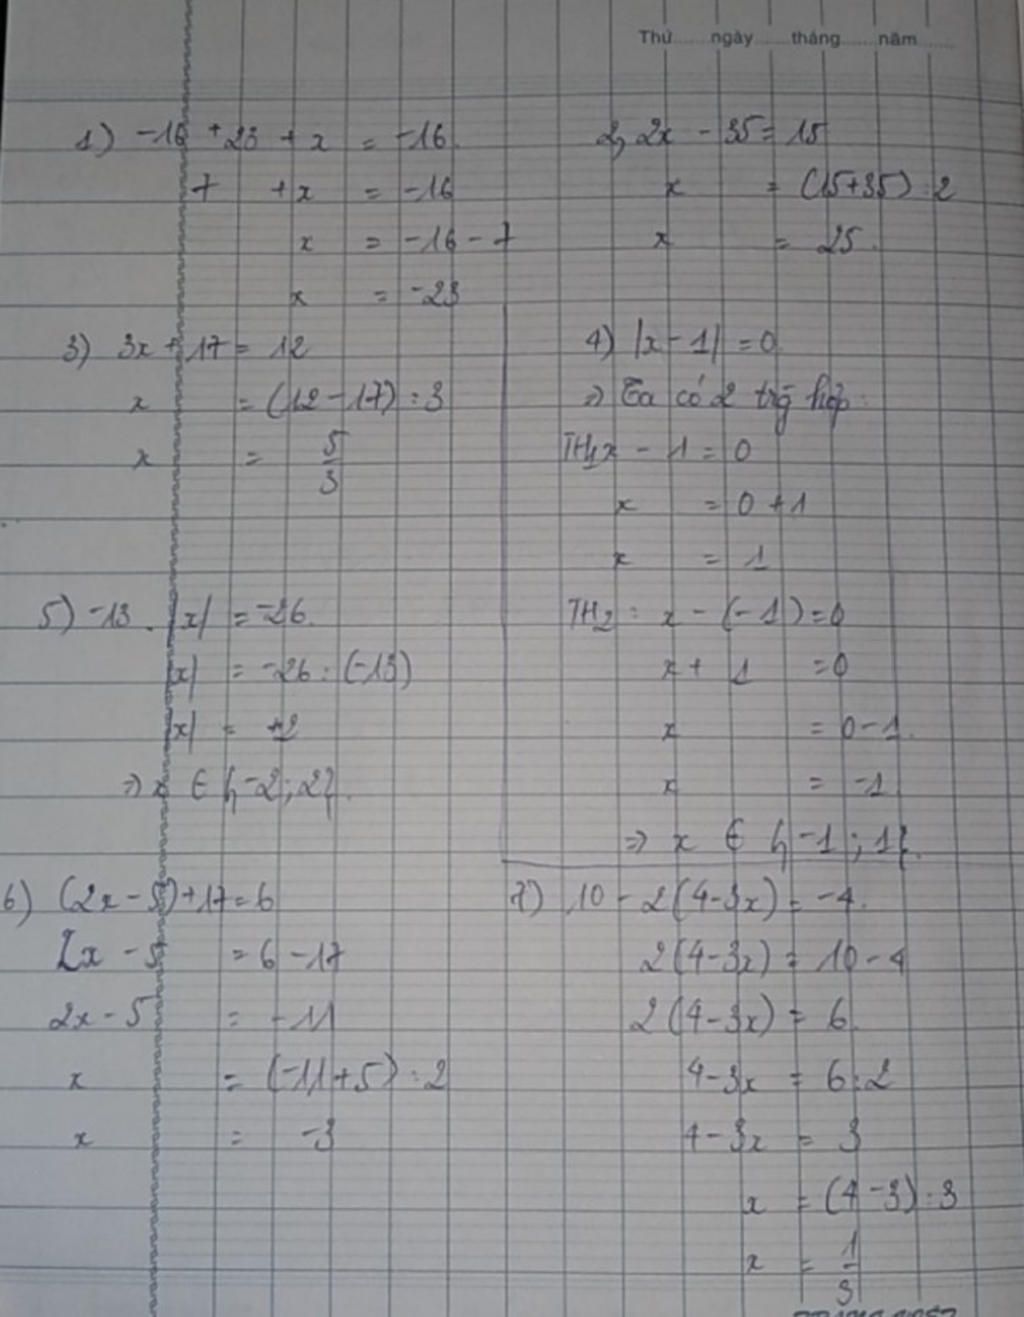 Thứ......ngày......tháng......năm......
1) -16 + 23 + x = -16
7 + x = -16
x = -16 - 7
x = -23
2, 2x - 35 = 15
x = (15+35) : 2
x = 25.
3) 3x + 17 = 12
x = (12 - 17) : 3
x = 5/3
4) |x - 1| = 0
=> Ta có 2 trg hợp:
TH1 x - 1 = 0
x = 0 + 1
x = 1
TH2 : x - (-1) = 0
x + 1 = 0
x = 0 - 1.
x = -1
=> x ∈ {-1 ; 1}.
5) -13 . |x| = -26.
|x| = -26 : (-13)
|x| = +2
=> x ∈ {-2 ; 2}.
6) (2x - 5) + 17 = 6
2x - 5 = 6 - 17
2x - 5 = -11
x = (-11 + 5) : 2
x = -3
7) 10 - 2(4-3x) = -4.
2(4-3x) = 10 - 4
2(4-3x) = 6
4-3x = 6:2
4-3x = 3
x = (4-3) : 3
x = 1/3